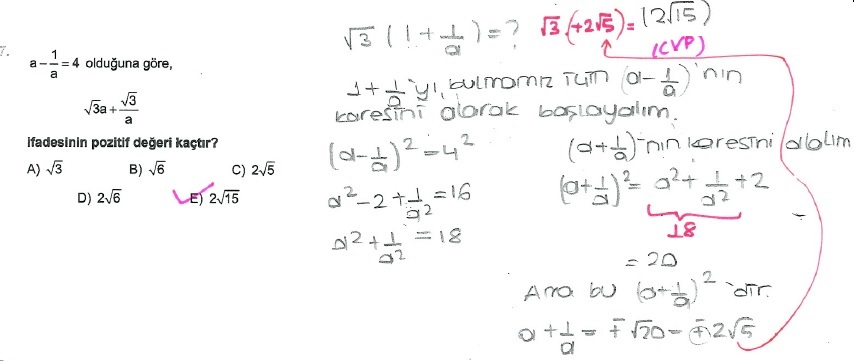 7.
a - 1/a = 4 olduğuna göre,
√3a + √3/a
ifadesinin pozitif değeri kaçtır?
A) √3 B) √6 C) 2√5
D) 2√6 E) 2√15
√3 (1 + 1/a) = ? √3.(+2√5) = (2√15)
(CVP)
1 + 1/a 'yı, bulmamız için (a - 1/a) 'nın
karesini alarak başlayalım.
(a - 1/a)² = 4²
a² - 2 + 1/a² = 16
a² + 1/a² = 18
(a + 1/a)'nın karesini alalım
(a + 1/a)² = a² + 1/a² + 2
18
= 20
Ama bu (a + 1/a)² 'dir.
a + 1/a = ∓√20 = ∓2√5